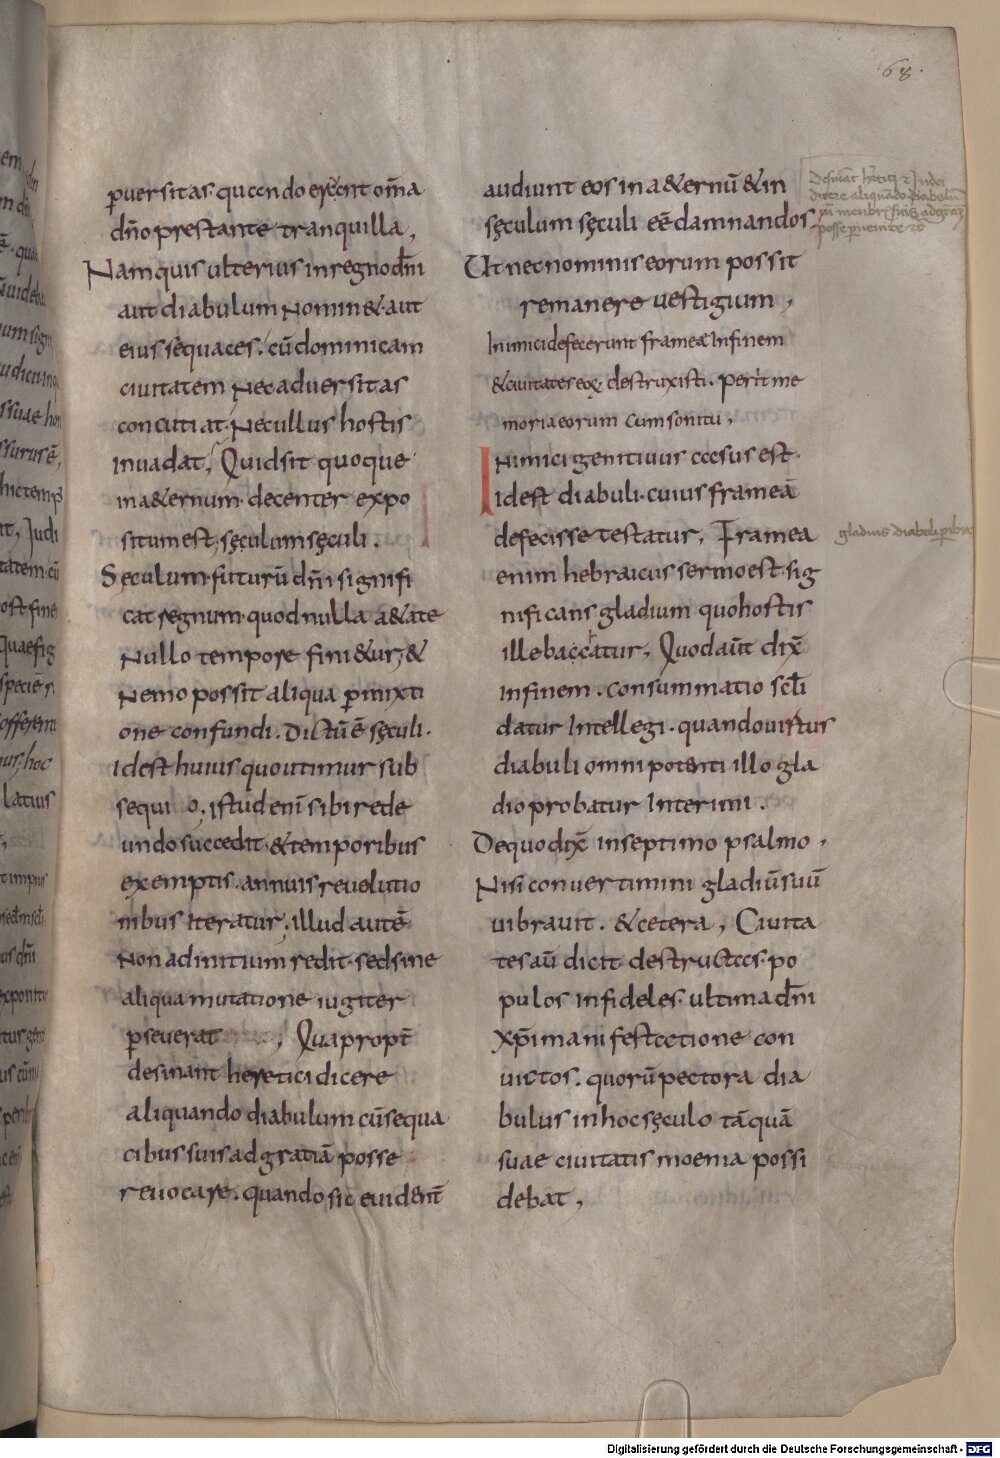 ·68·
puersitas quando erẹcent om̄a
dn̄o prestante tranquilla,
Nam quis ulterius in regno dn̄i
aut diabulum nomin& aut
eius sequaces. cū dominicam
ciuitatem nec aduersitas
concutiat· nec ullus hostis
inuadat, Quid sit quoque
in a&ernum· decenter expo
situm est, sęculum sęculi.
Sęculum· futurū dn̄i signifi
cat regnum· quod nulla a&ate
nullo tempore fini&ur, &
nemo possit aliqua pmixti
one confundi. dictū ē sęculi.
Idest huius quo utimur sub
sequi o. istud eni sibi rede
undo succedit· & temporibus
exemptis. annuis reuolutio
nibus iteratur. illud autē
non ad initium redit· sed sine
aliqua mutatione iugiter
pseuerat , Quapropt̄
desinant heretici dicere
aliquando diabulum cū sequa
cibus suis ad gratiā posse
reuocare. quando sic euident̄
audiunt eos in a&ernū & in
sęculum sęculi eē damnandos,
Ut nec nominis eorum possit
remanere uestigium,
Inimici defecerunt frameae in finem
& ciuitates eoꝝ destruxisti. periit me
moria eorum cum sonitu,
Inimici genitiuus casus est·
Idest diabuli· cuius frameā
defecisse testatur, Framea
enim hebraicus sermo est· sig
nificans gladium quo hostis
ille baccatur, Quod aūt dix̄
in finem. consummatio scłi
datur intellegi· quando uirtus
diabuli omnipotenti illo gla
dio probatur interimi.
De quo dix̄ in septimo psalmo,
Nisi conuertimini gladiū suū
uibrauit. & cetera, Ciuita
tes aū dicit destructas· po
pulos infideles· ultima dn̄i
xp̄i manifestatione con
uictos. quorū pectora dia
bulus in hoc sęculo tāquā
suae ciuitatis moenia possi
debat,
dicere aliquando diabolum
gladius diaboli
Digitalisierung gefördert durch die Deutsche Forschungsgemeinschaft - DFG